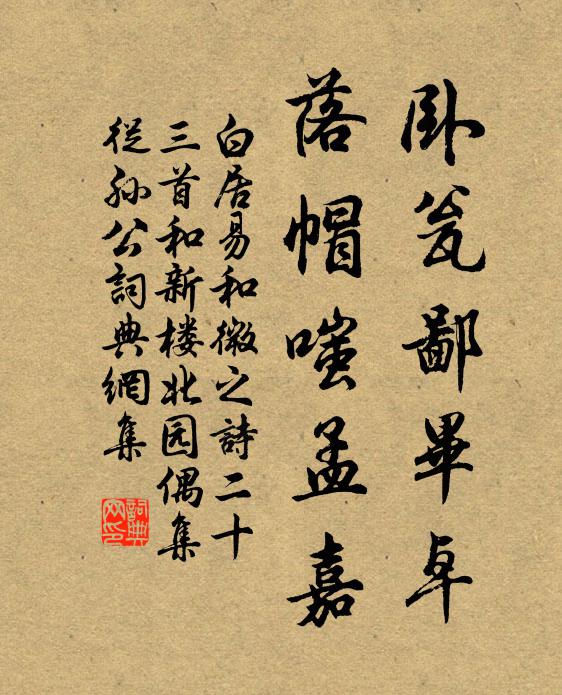 卧瓮鄙畢卓
落帽嗤孟嘉
白居易和微之詩二十
三首和新楼北园偶集
從孙公詞典網集
詞典网印